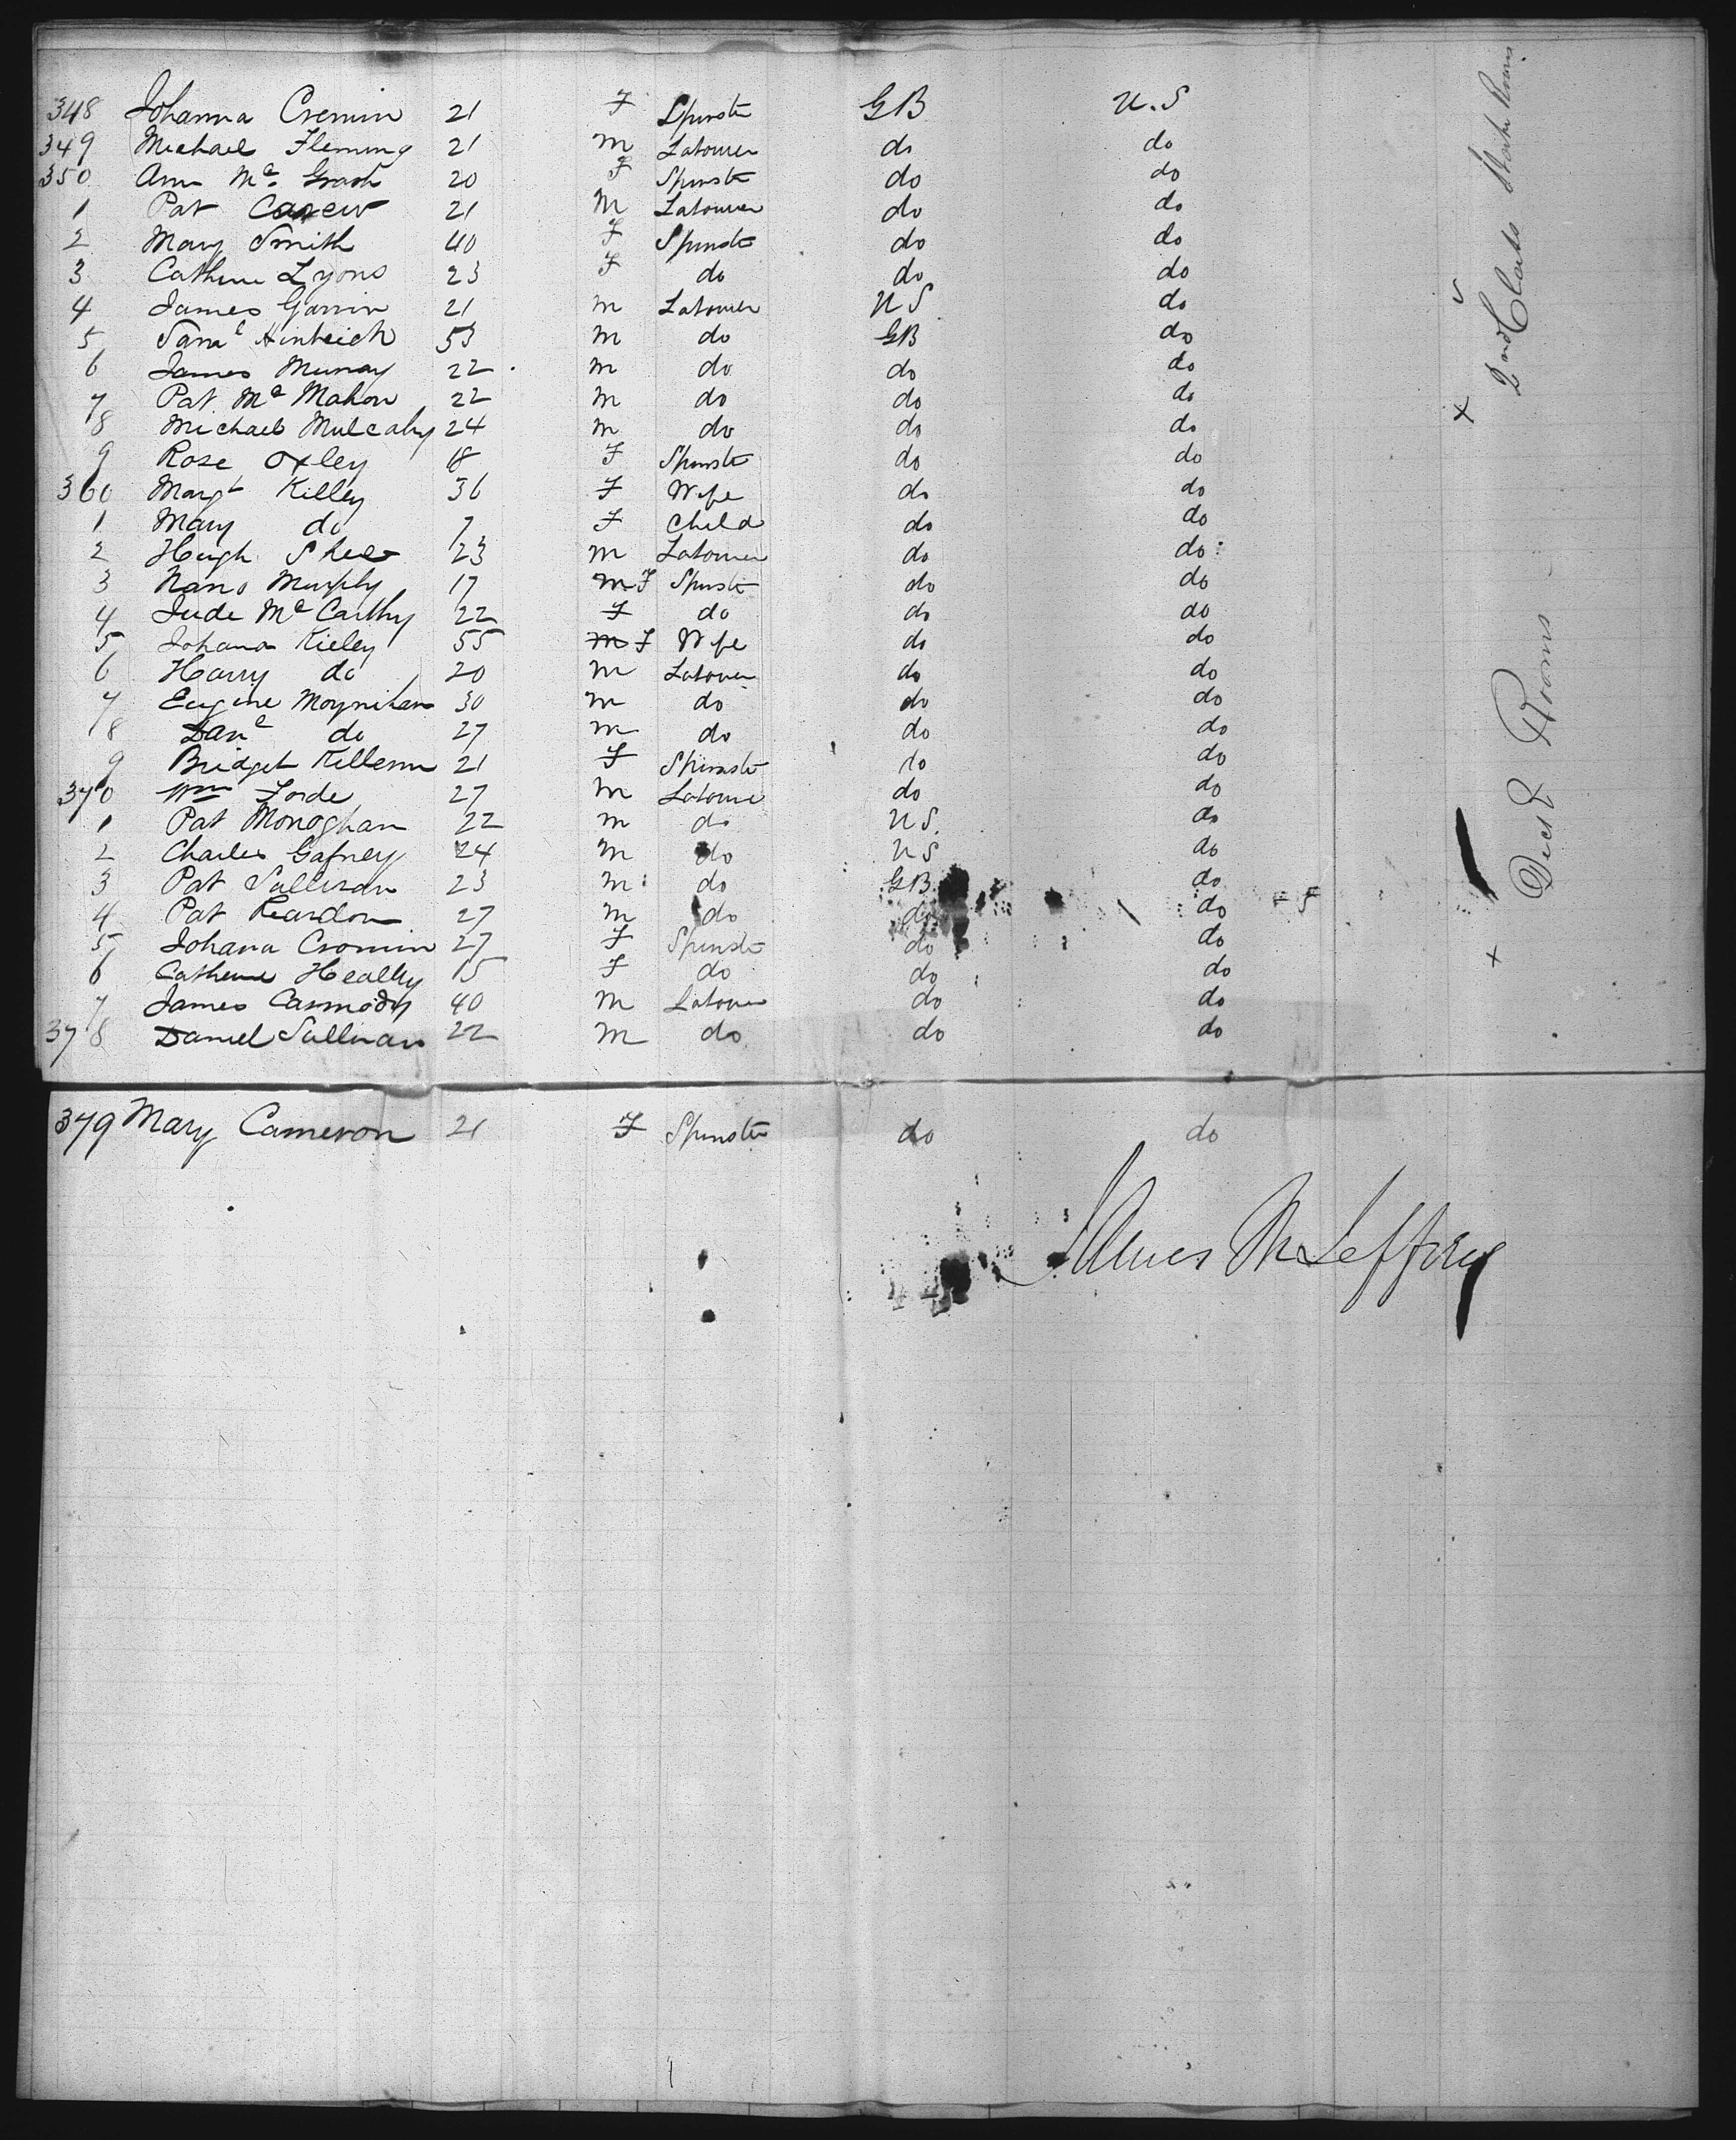 348 Johanna Cremin 21 F Spinstr GB U.S
349 Michael Fleming 21 M Labourer do do
350 Ann Mc Grath 20 F Spinstr do do
1 Pat Carew 21 M Labourer do do
2 Mary Smith 40 F Spinstr do do
3 Cathrine Lyons 23 F do do do
4 James Gavin 21 M Labourer US do
5 Saml 53 M do GB do
6 James Murray 22 M do do do
7 Pat Mc Mahon 22 M do do do
8 Michael Mulcahy 24 M do do do
9 Rose Oxley 18 F Spinstr do do
360 Margt Killey 36 F Wife do do
1 Mary do 7 F Child do do
2 Hugh Shee 23 M Labourer do do
3 Nano Murphy 17 M F Spinstr do do
4 Jude Mc Carthy 22 F do do do
5 Johana Kieley 55 M F Wife do do
6 Harry do 20 M Labourer do do
7 Eugene Moynihan 30 M do do do
8 Danl do 27 M do do do
9 Bridget Killern 21 F Spinstr do do
370 Wm Forde 27 M Labourer do do
1 Pat Monoghan 22 M do US. do
2 Charles Gafney 24 M do US do
3 Pat Sullivan 23 M do GB do
4 Pat Reardon 27 M do do do
5 Johana Cronin 27 F Spinstr do do
6 Catherine Healley 15 F do do do
7 James Carmody 40 M Labourer do do
378 Daniel Sullivan 22 M do do do
379 Mary Cameron 21 F Spinster do do
James McJeffrey
2nd Class State Rooms
Deck Rooms